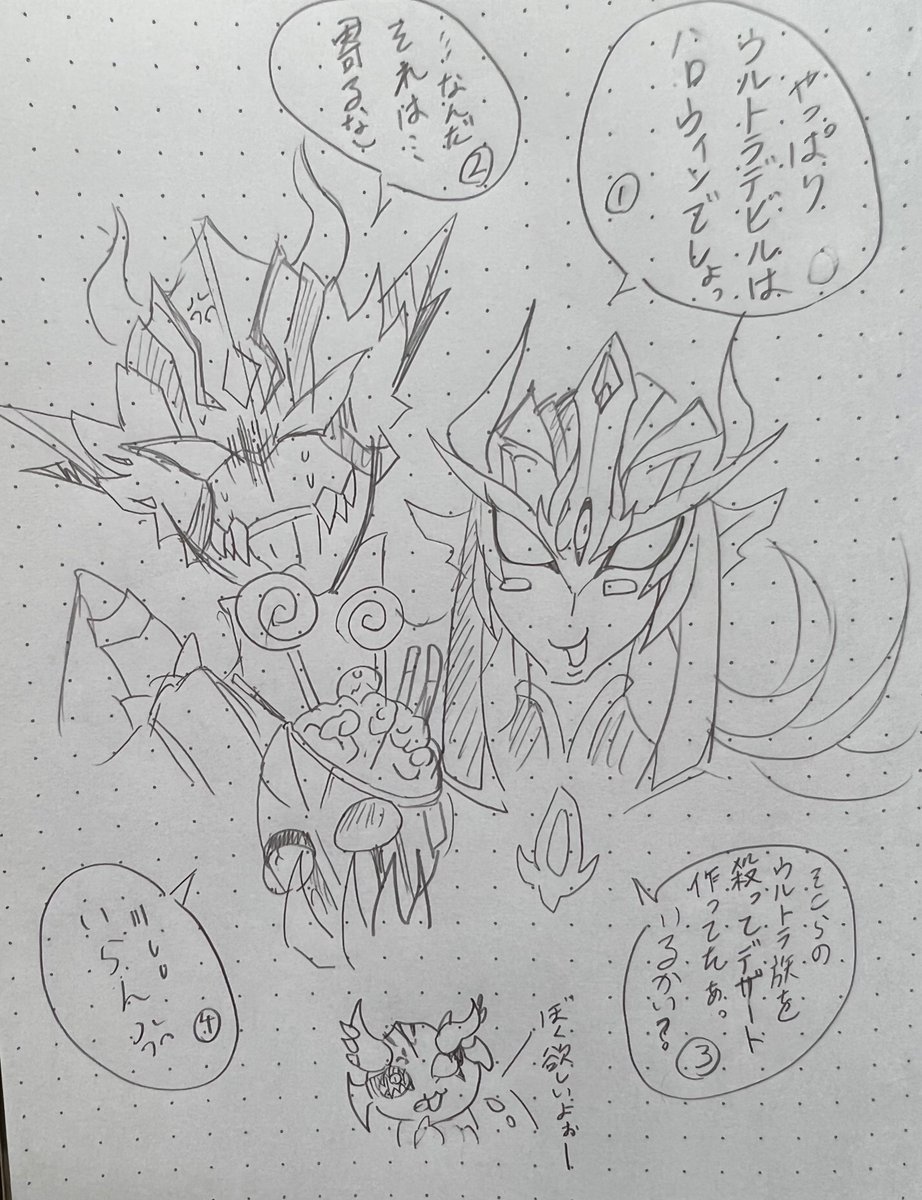 やっぱり
ウルトラデビルは
ハロウィンでしょっ
①
…なんだ
それは…
寄るな
②
そこらの
ウルトラ族を
殺ってデザート
作ってたぁ。
いるかい？
③
いらん
④
ぼく欲しいよぉー